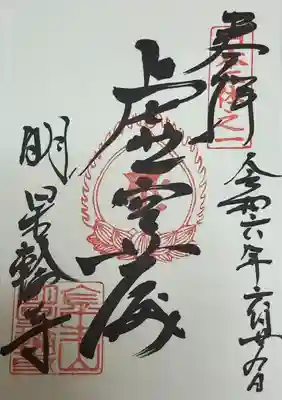 奉拝
令和六年六月廿九日
虚空蔵
明星輪寺